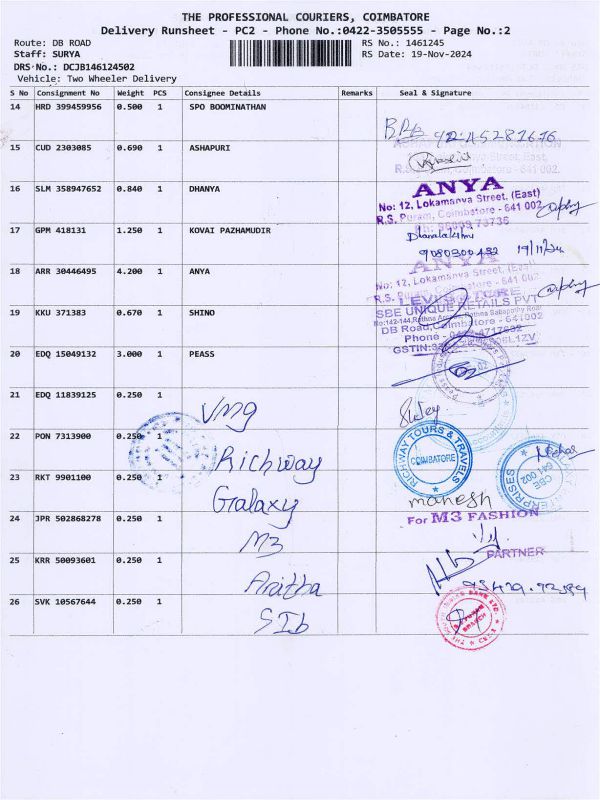 THE PROFESSIONAL COURIERS, COIMBATORE
Delivery Runsheet - PC2 - Phone No.:0422-3505555 - Page No.:2
Route: DB ROAD RS No.: 1461245
Staff: SURYA RS Date: 19-Nov-2024
DRS No.: DCJB146124502
Vehicle: Two Wheeler Delivery
S No Consignment No Weight PCS Consignee Details Remarks Seal & Signature
14 HRD 399459956 0.500 1 SPO BOOMINATHAN
15 CUD 2303085 0.690 1 ASHAPURI
16 SLM 358947652 0.840 1 DHANYA
ANYA
No: 12, Lokamanya Street, (East)
R.S. Puram, Coimbatore - 641 002.
17 GPM 418131 1.250 1 KOVAI PAZHAMUDIR
Dhanalakshmi
9080900492 19/11/24
18 ARR 30446495 4.200 1 ANYA
ANYA
No: 12, Lokamanya Street, (East)
R.S. Puram, Coimbatore - 641 002.
19 KKU 371383 0.670 1 SHINO
LEVI STORE
SBE UNIQUE RETAILS PVT
DB Road, Coimbatore - 641002
20 EDQ 15049132 3.000 1 PEASS
21 EDQ 11839125 0.250 1 VMG
22 PON 7313900 0.250 1 Richway
RICHWAY TOURS & TRAVELS
COIMBATORE
23 RKT 9901100 0.250 1 Galaxy
CBE
641 002
mahesh
24 JPR 502868278 0.250 1 M3
For M3 FASHION
PARTNER
25 KRR 50093601 0.250 1
26 SVK 10567644 0.250 1 SIb